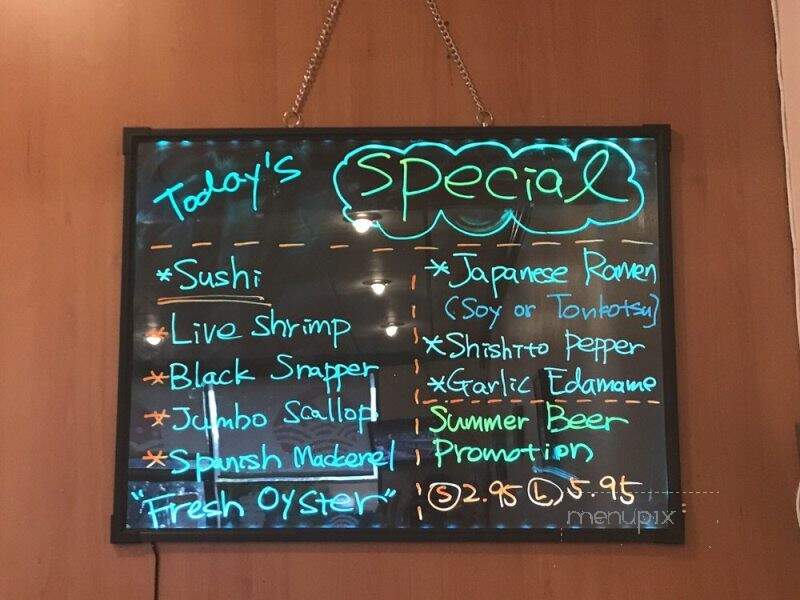 Today's Special
*Sushi
*Live Shrimp
*Black Snapper
*Jumbo Scallop
*Spanish Mackerel
"Fresh Oyster"
*Japanese Ramen
(Soy or Tonkotsu)
*Shishito Pepper
*Garlic Edamame
Summer Beer
Promotion
Ⓢ 2.95 Ⓛ 5.95
menupix